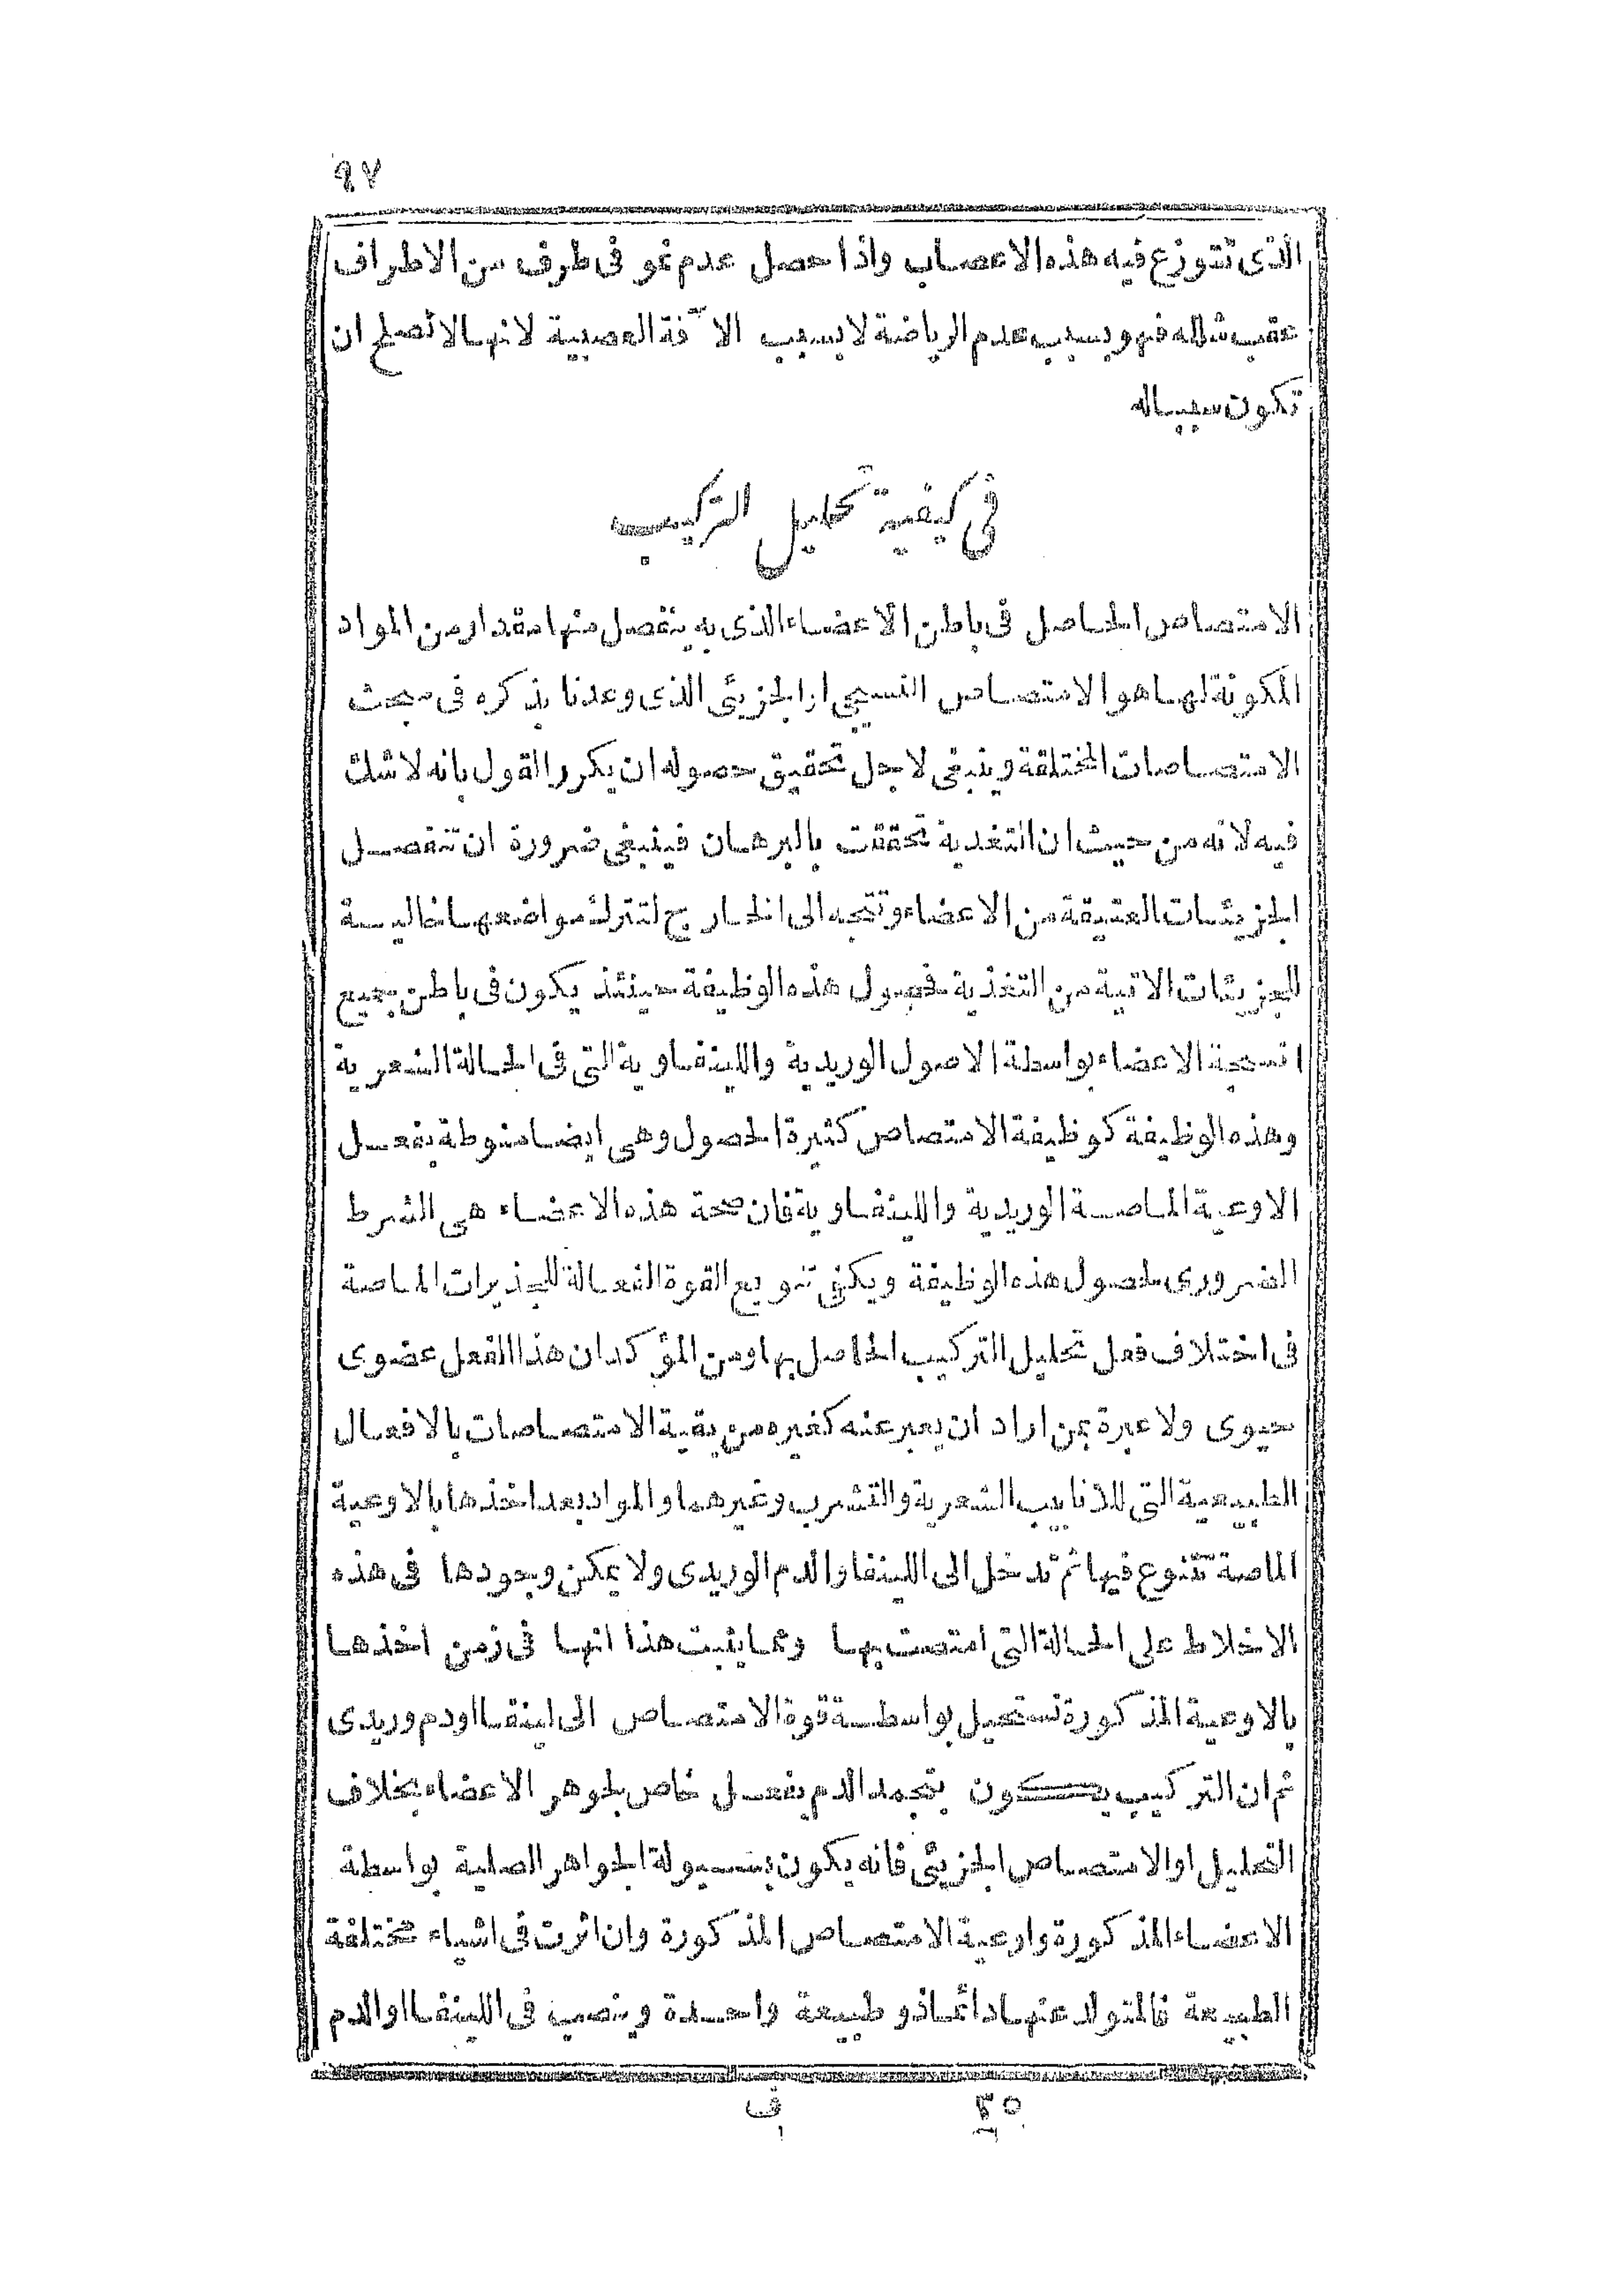 ٩٧
الذى تتوزع فيه هذه الاعصاب واذا حصل عدم نمو فى طرف من الاطراف
عقب شلله فهو بسبب عدم الرياضة لا بسبب الا ٓفة العصبية لانها لا تصلح ان
تكون سببا له
فى كيفية تحليل التركيب
الامتصاص الحاصل فى باطن الاعضاء الذى به ينفصل منها مقدار من المواد
المكونة لها هو الامتصاص النسيجى او الجزيئى الذى وعدنا بذكره فى مبحث
الامتصاصات المختلفة وينبغى لاجل تحقيق حصوله ان يكرر القول بانه لا شك
فيه لانه من حيث ان التغدية تحققت بالبرهان فينبغى ضرورة ان تنفصل
الجزيئات العتيقة من الاعضاء وتتجه الى الخارج لتترك مواضعها خالية
للجزيئات الاتية من التغذية فحصول هذه الوظيفة حينئذ يكون فى باطن جميع
انسجة الاعضاء بواسطة الاصول الوريدية والليفاوية التى فى الحالة الشعرية
وهذه الوظيفة كوظيفة الامتصاص كثيرة الحصول وهى ايضا منوطة بفعل
الاوعية الماصة الوريدية والليفاوية فان صحة هذه الاعضاء هى الشرط
الضرورى لحصول هذه الوظيفة ويكفى تنويع القوة الفعالة للجذيرات الماصة
فى اختلاف فعل تحليل التركيب الحاصل بها ومن المؤكد ان هذا الفعل عضوى
حيوى ولا عبرة بمن اراد ان يعبر عنه كغيره من بقية الامتصاصات بالافعال
الطبيعية التى للانابيب الشعرية والتشرب وغيرهما والمواد بعد اخذها بالاوعية
الماصة تتنوع فيها ثم تدخل الى اللينفا والدم الوريدى ولا يمكن وجودها فى هذه
الاخلاط على الحالة التى امتصت بها ومما يثبت هذا انها فى زمن اخذها
بالاوعية المذكورة تستحيل بواسطة قوة الامتصاص الى لينفا او دم وريدى
ثم ان التركيب يكون بتجمد الدم بفعل خاص بجوهر الاعضاء بخلاف
التحليل او الامتصاص الجزيئى فانه يكون بسيولة الجواهر الصلبة بواسطة
الاعضاء المذكورة واوعية الامتصاص المذكورة وان اثرت فى اشياء مختلفة
الطبيعة فالمتولد عنها دائما ذو طبيعة واحدة وينصب فى اللينفا او الدم
٢٥